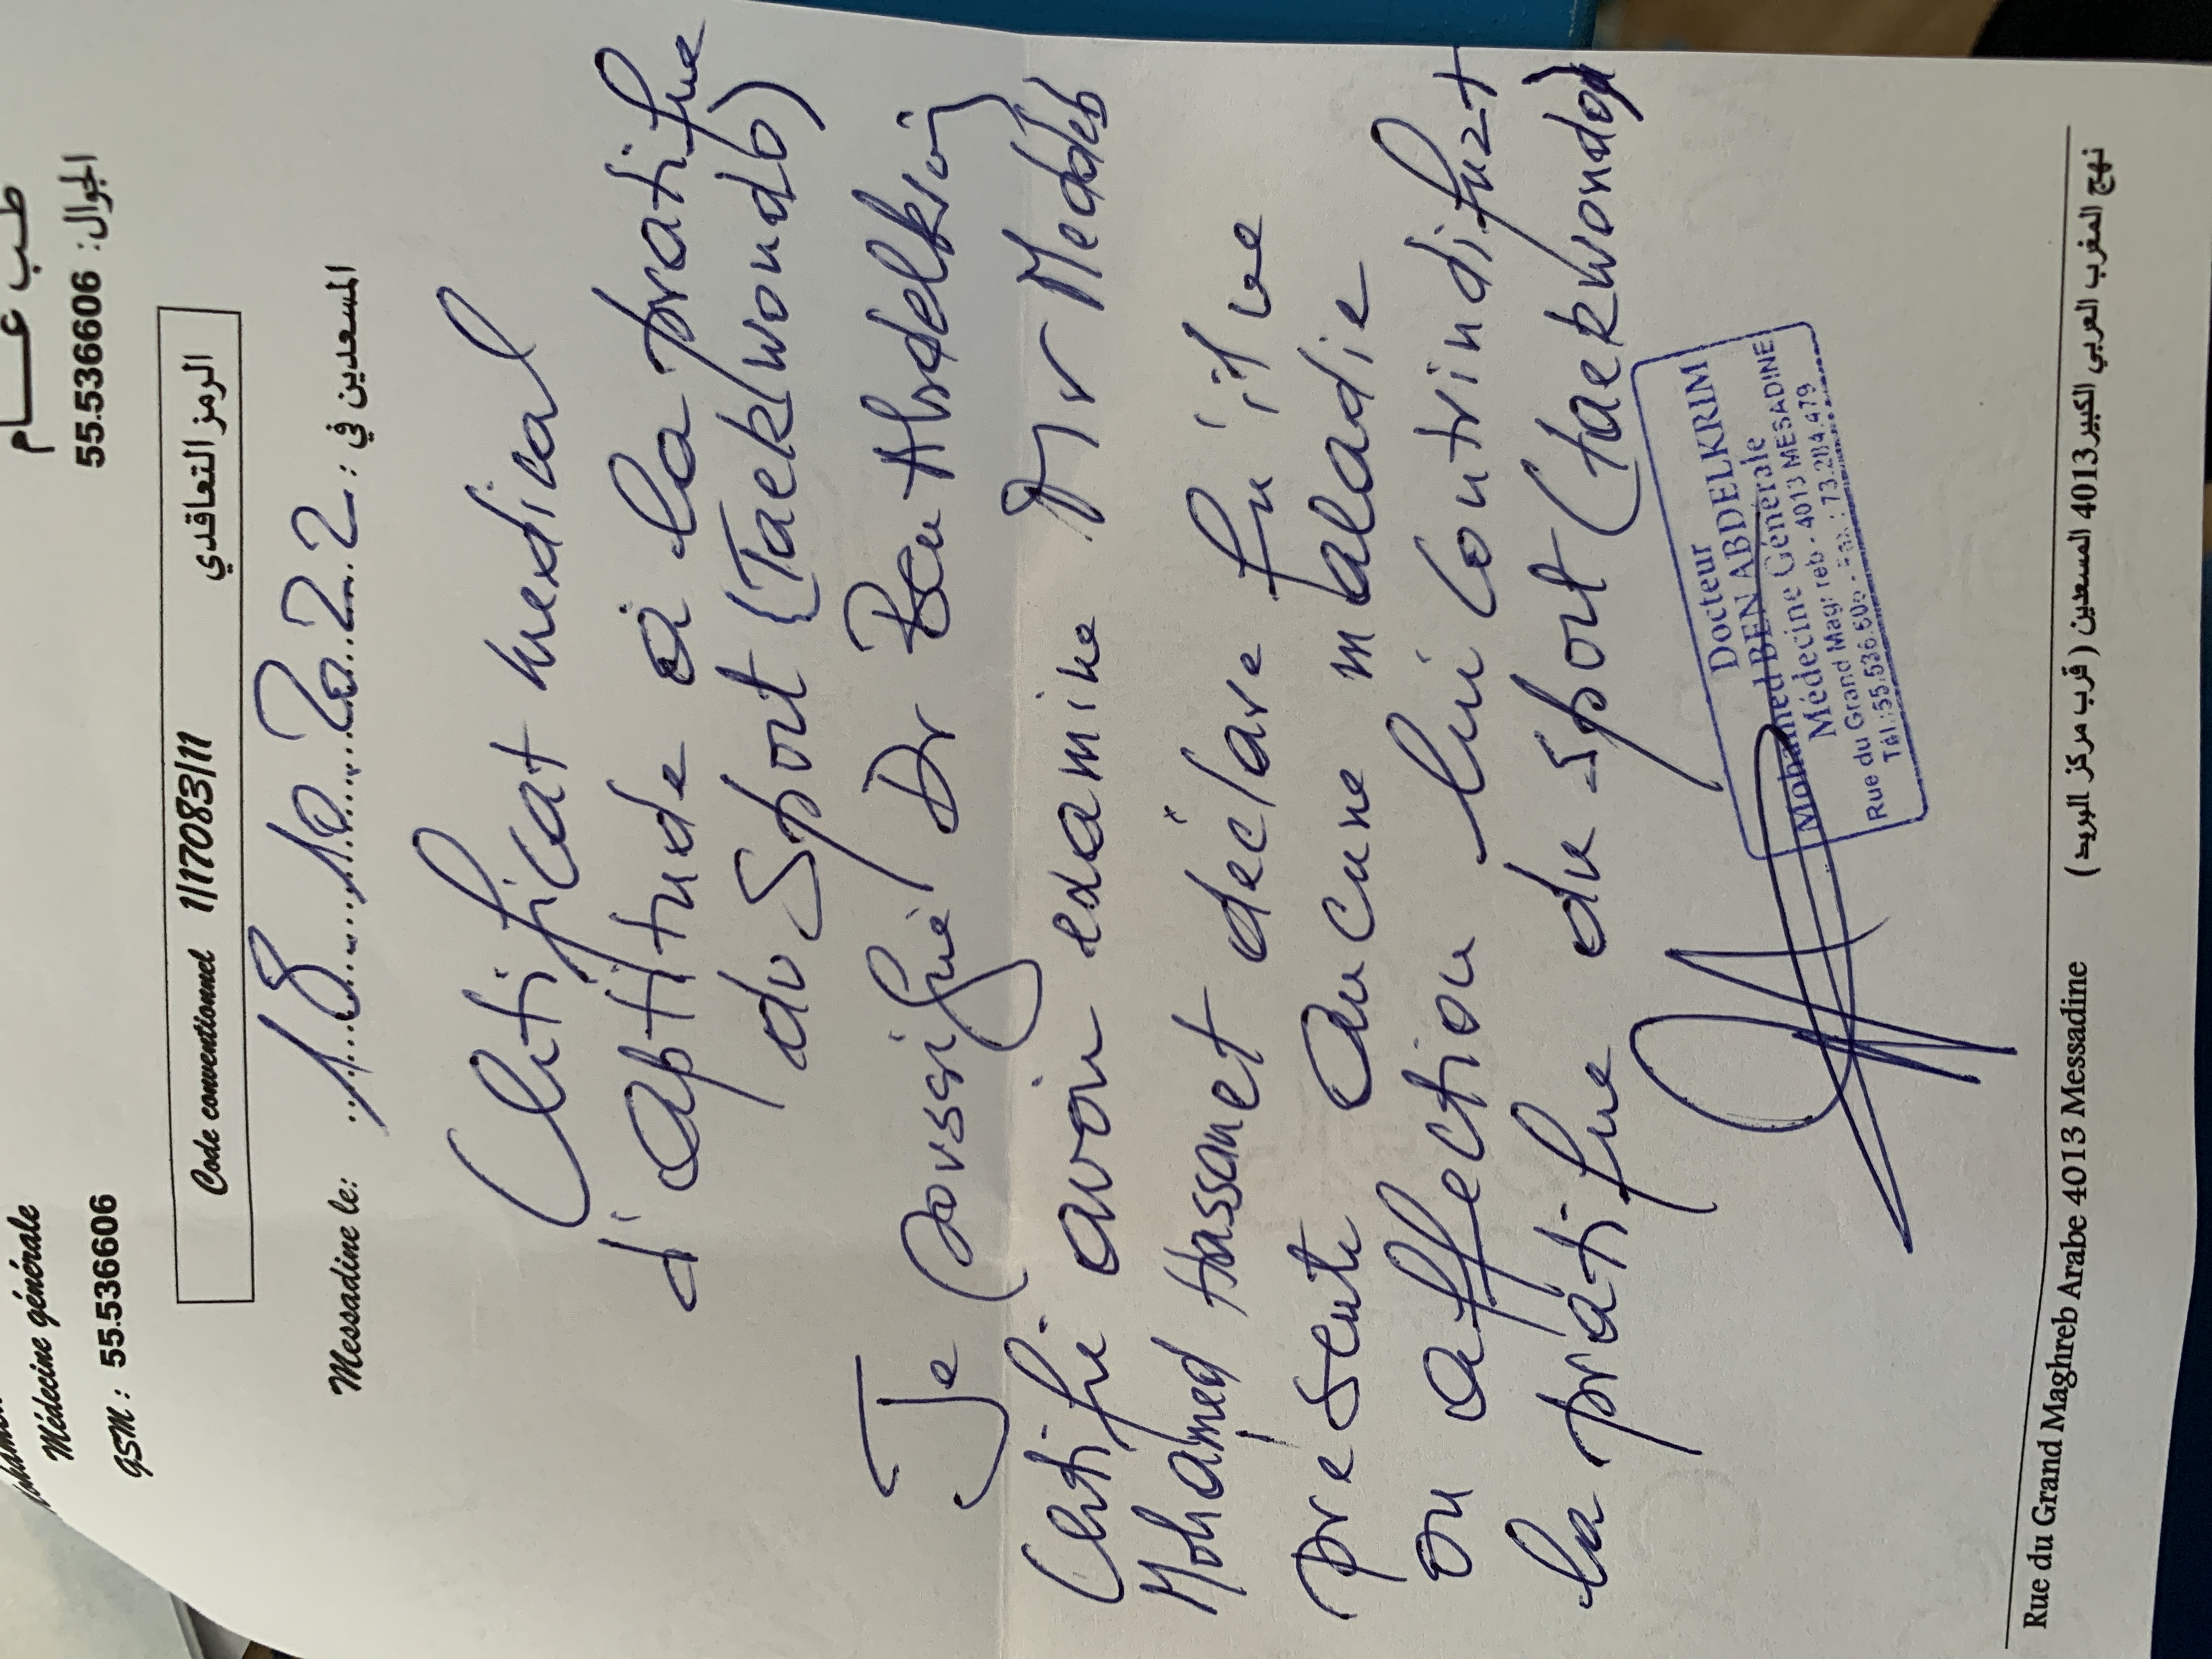 Médecine générale
طب عـــام
GSM : 55.536606
الجوال: 55.536606
Code conventionnel 1/17083/11 الرمز التعاقدي
Messadine le: 18 10 2022 : المسعدين في
Certificat medical
d'aptitude à la pratique
du Sport (Taekwondo)
Je soussigné Dr Ben Abdelkrim
Certifie avoir examiné Mr Meddeb
Mohamed Hassanet déclare qu'il ne
présente aucune maladie
ou affection lui contrindiquant
la pratique du sport (taekwondo)
Docteur
Mohamed BEN ABDELKRIM
Médecine Générale
Rue du Grand Maghreb - 4013 MESADINE
Tél.:55.536.606 - Fax : 73.284.479
Rue du Grand Maghreb Arabe 4013 Messadine
نهج المغرب العربي الكبير 4013 المسعدين ( قرب مركز البريد )